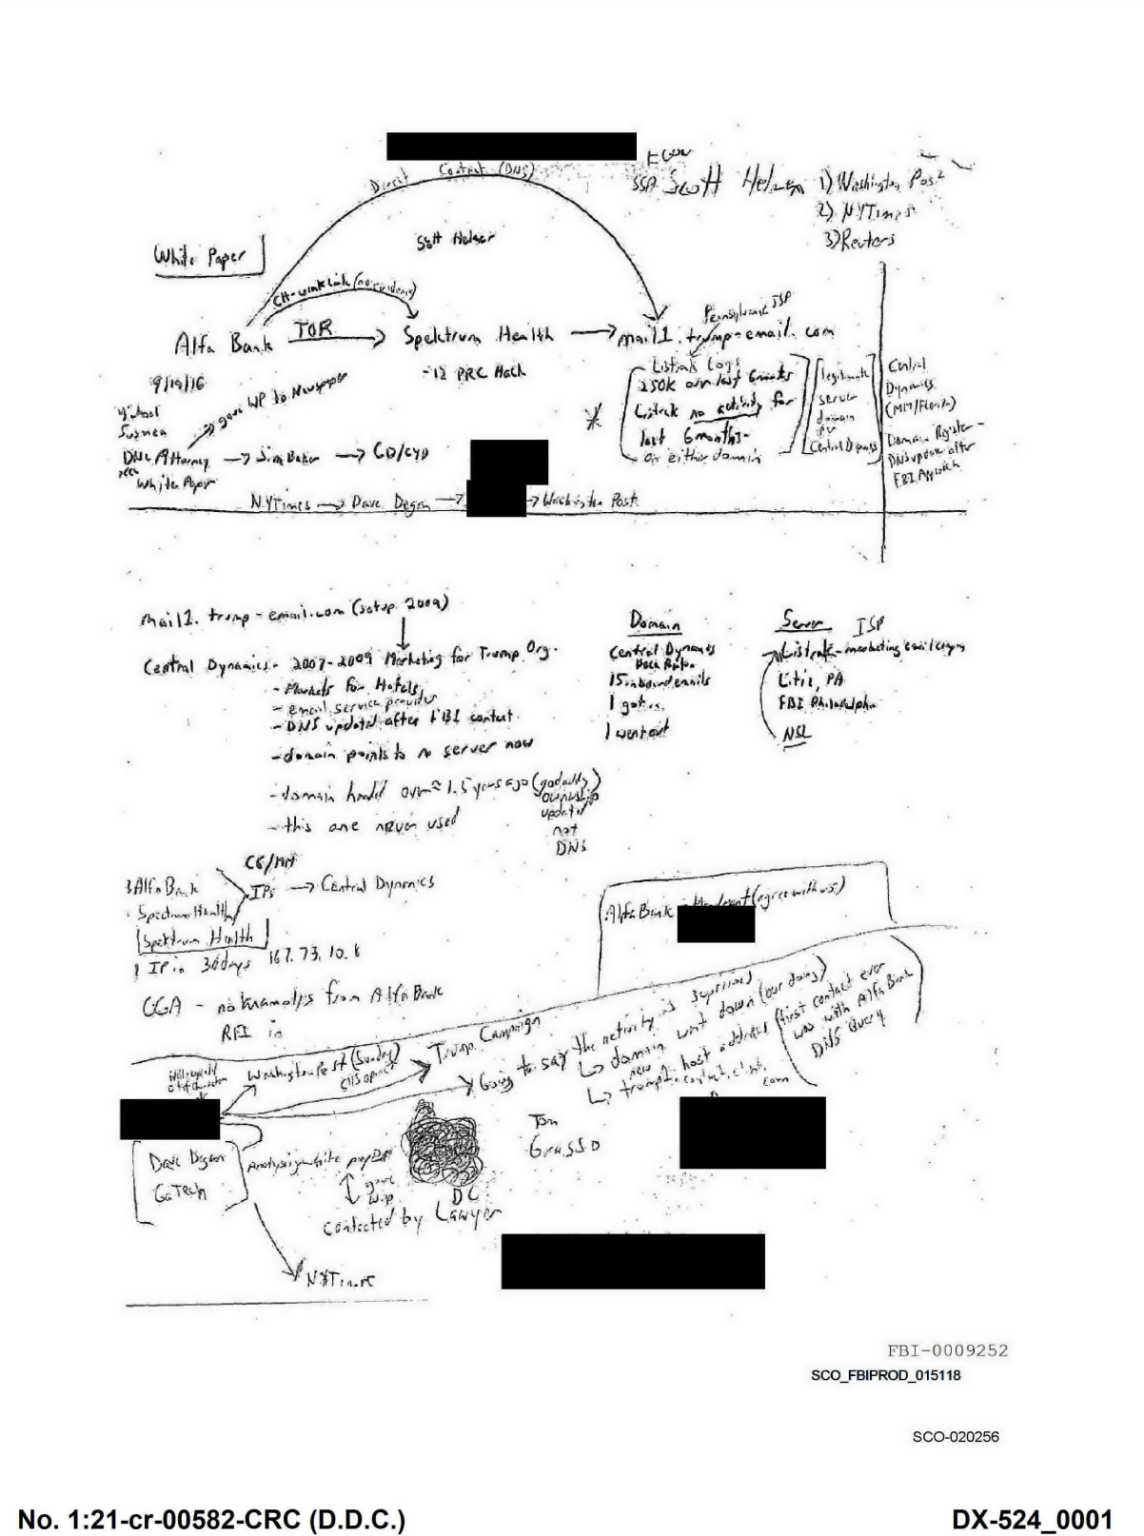 Direct Contact (DNS)
ECOU
SSA Scott Helman
1) Washington Post
2) NYTimes
3) Reuters
Scott Helman
White Paper
CH-winklink (no evidence)
Alfa Bank TOR Spektrum Health mail1.trump-email.com
Pennsylvania ISP
-12 PRC Hack
9/19/16
gave WP to Newspaper
Listrak Logs
250K over last 6 months
Listrak no activity for
last 6 months-
on either domain
legitimate
server
domain
for
Central Dynamics
Central
Dynamics
(MM/Florida)
Domain Register -
DNS update after
FBI Approach
DNC Attorney → Jim Baker → CD/CYD
White Paper
NYTimes → Dave Degon → → Washington Post
mail1.trump-email.com (setup 2009)
Central Dynamics - 2007-2009 Marketing for Trump Org.
- Markets for Hotels
- email service provider
- DNS updated after FBI contact
- domain points to no server now
- domain handed over ≈ 1.5 years ago (godaddy)
ownership
updated
not
DNS
- this one never used
Domain
Central Dynamics
Boca Raton
15 inbound emails
1 got in
1 went out
Server ISP
Listrak - marketing email company
Litiz, PA
FBI Philadelphia
NSL
CG/MM
3 Alfa Bank
Spectrum Health
IPs → Central Dynamics
Spektrum Health
1 IP in 30 days 167.73.10.8
OGA - no from Alfa Bank
RFI in
Alfa Bank - Mandiant (agree with us)
Washington Post (Sunday)
Trump Campaign
CHS opened
Going to say the activity is suspicious
↳ domain went down (our doing)
↳ new host address (first contact ever
was with Alfa Bank
DNS Query
Dave Degon
GaTech
Analysis white paper
gave
w.p
DC
contacted by Lawyer
Tom
Grasso
NYTimes
FBI-0009252
SCO_FBIPROD_015118
SCO-020256
No. 1:21-cr-00582-CRC (D.D.C.)
DX-524_0001